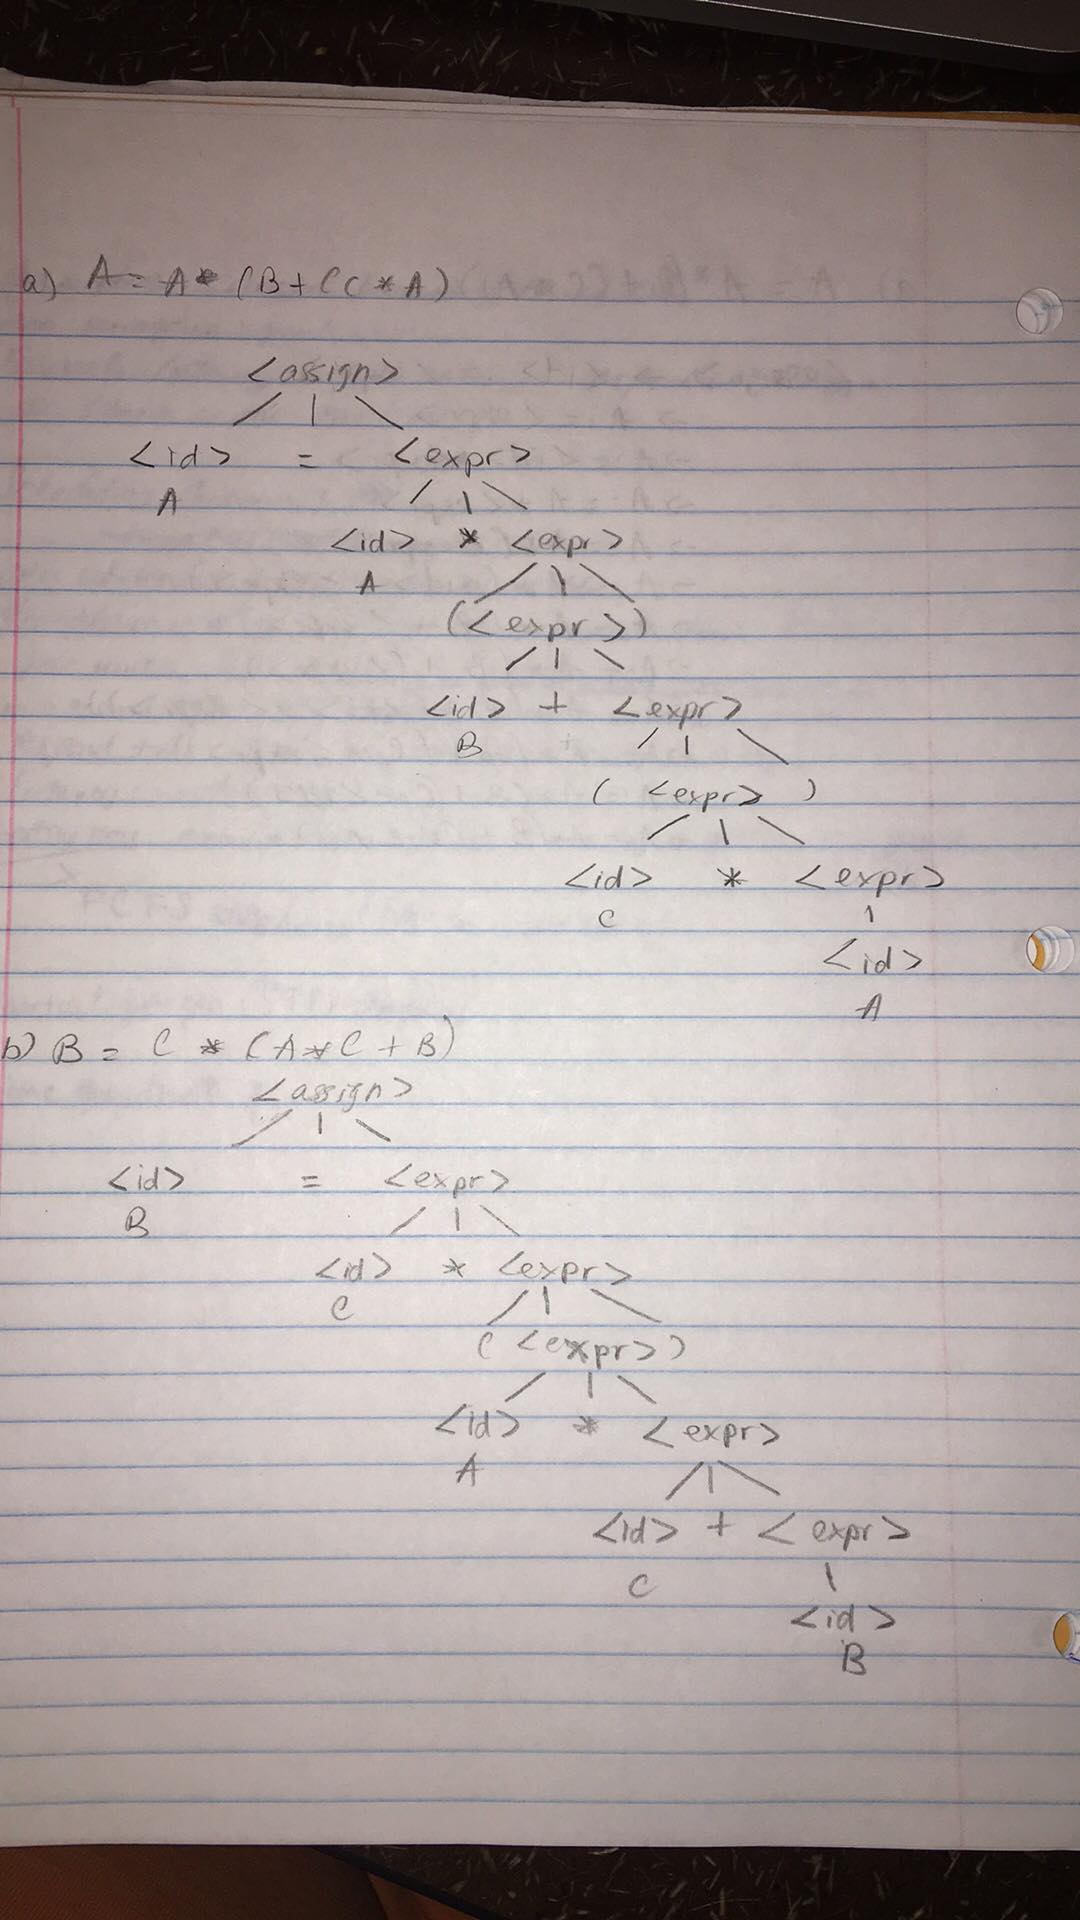 a) A = A * (B + (C * A)
<assign>
<id> = <expr>
A
<id> * <expr>
A
(<expr>)
<id> + <expr>
B
( <expr> )
<id> * <expr>
C
<id>
A
b) B = C * (A * C + B)
<assign>
<id> = <expr>
B
<id> * <expr>
C
( <expr> )
<id> * <expr>
A
<id> + <expr>
C
<id>
B